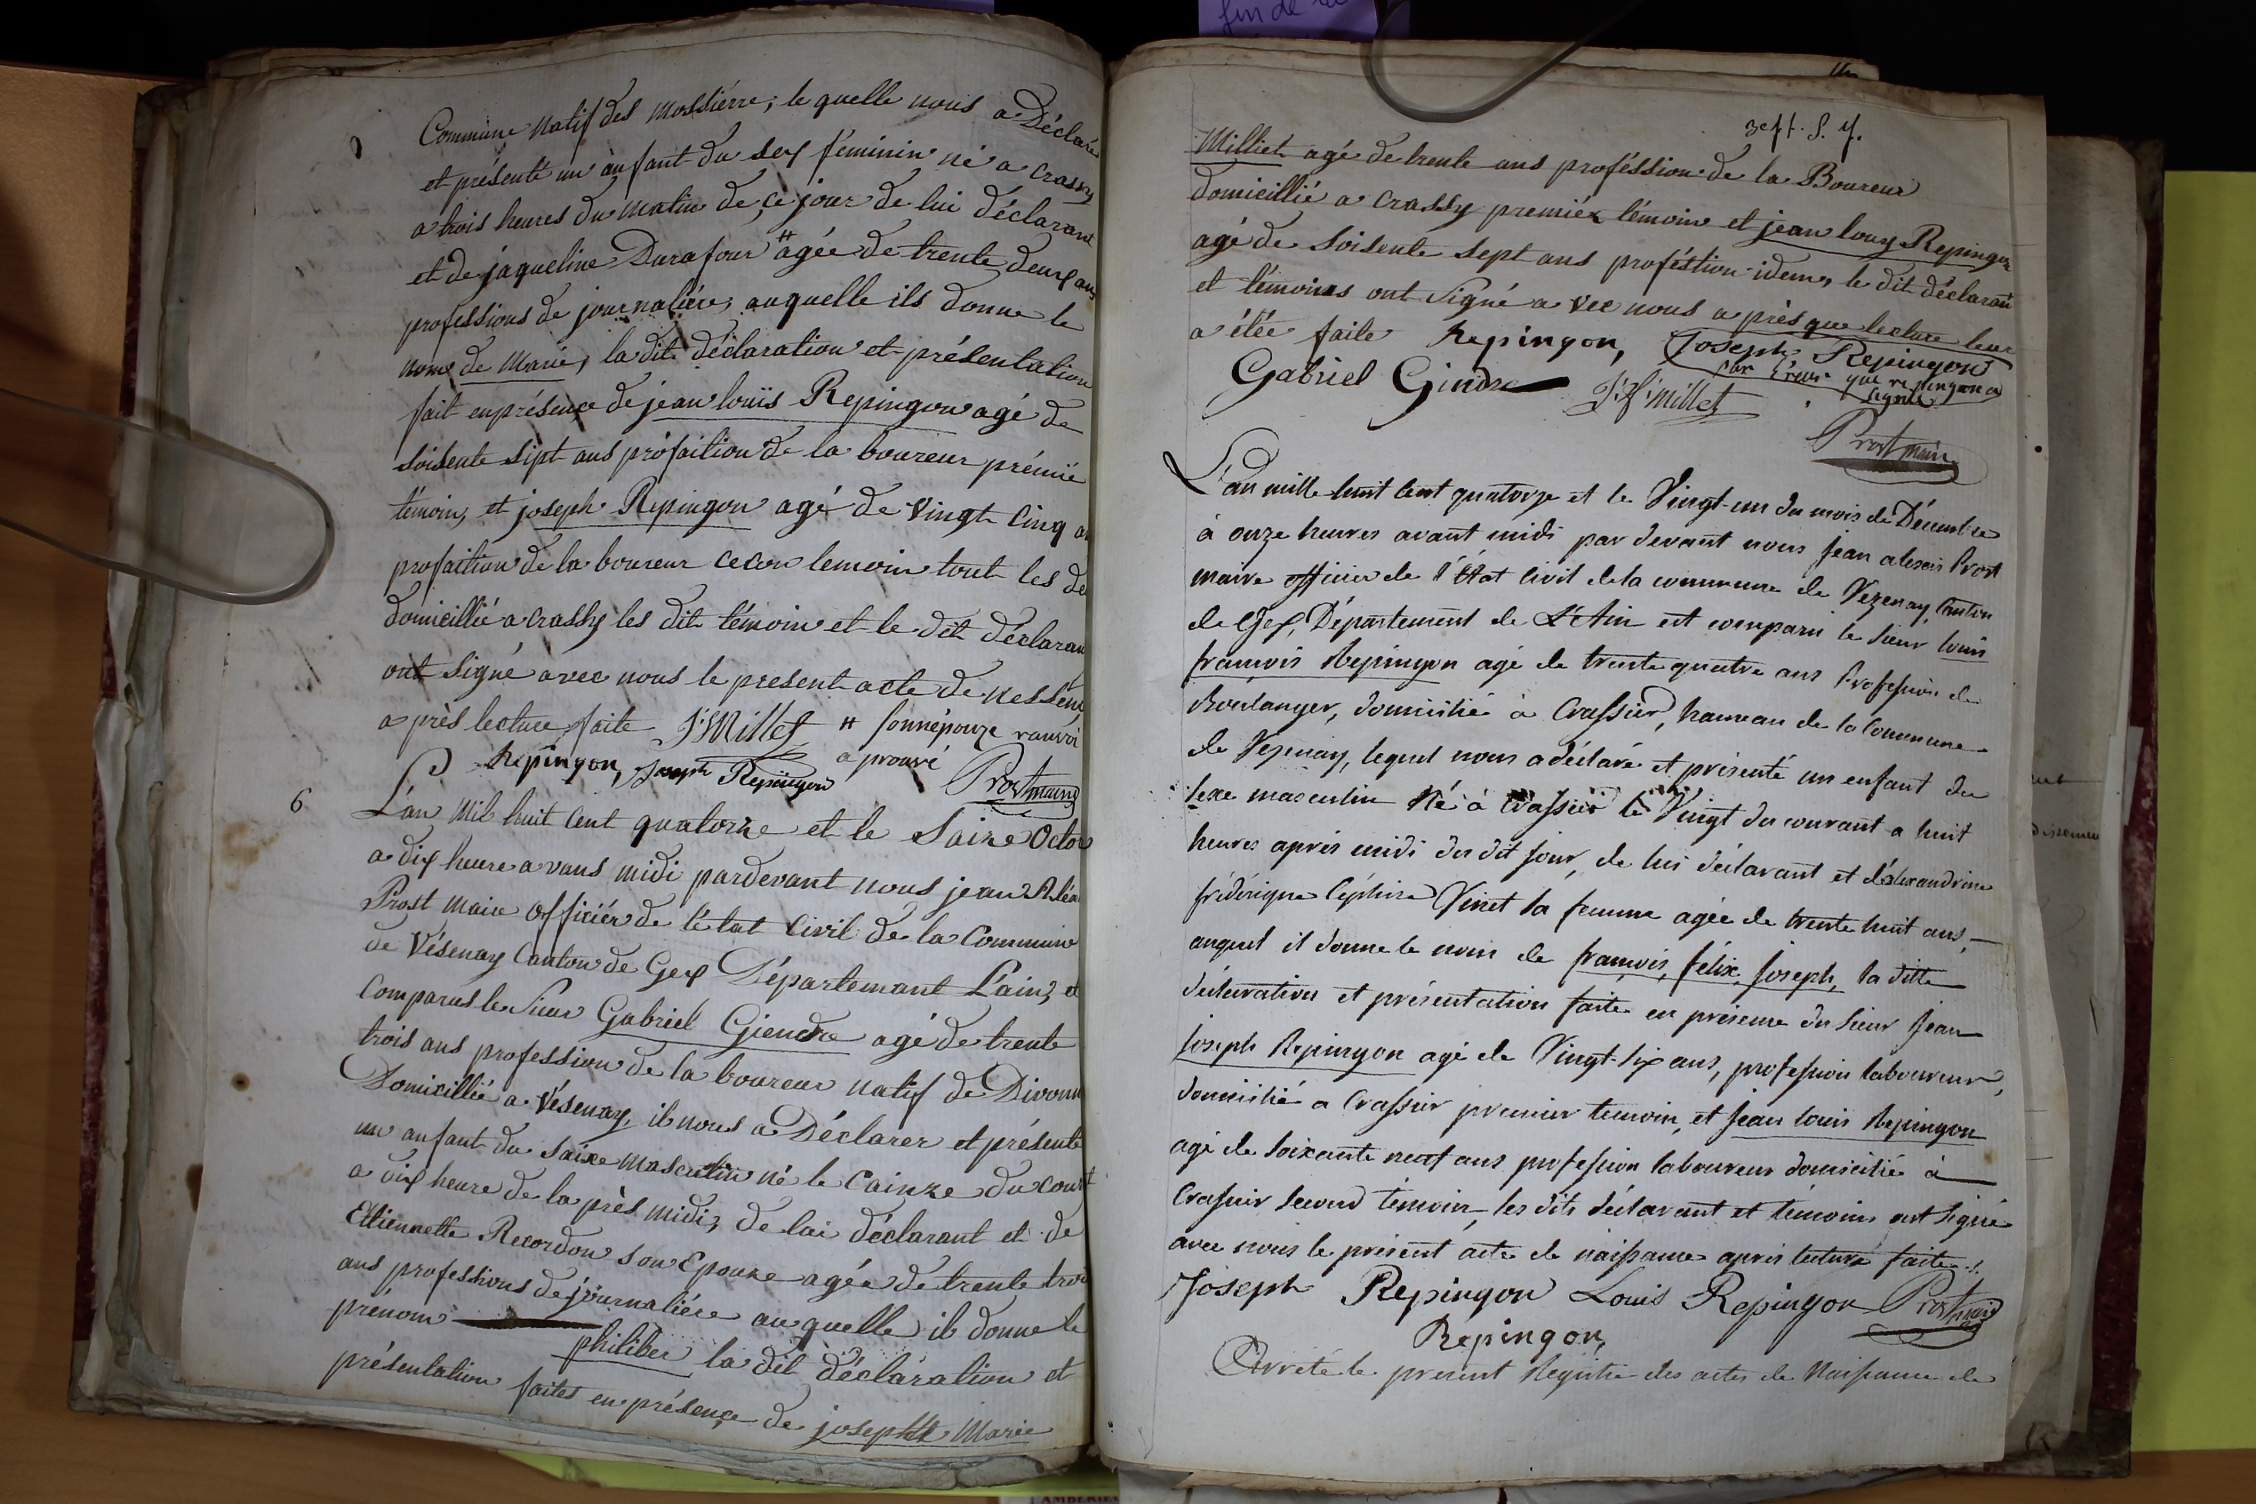 fin de
Commune natif des mossiérre; le quelle nous a Déclaré
et présenté un anfant du sex féminin né a crassy
a trois heures du matin de ce jour de lui déclarant
et de jaqueline Durafour # agée de trente deux ans
professions de journaliére, auquelle ils donne le
nom de Marie, la dite déclaration et présentation
fait en présence de jean louïs Repingon agé de
soisente sipt ans profaition de la boureur prémié
témoin, et joseph Repingon agé de vingt cinq an
profaition de la boureur cecon temoin tout les de
domicillié a crassy les dit témoin et le dit déclaran
ont signé avec nous le present acte de nessen
a près lecture faite J. Millet # sonnépouze ranvoi
Repingon, Joseph Repingon a prouvé Prost maire
6 L'an mil huit Cent quatorze et le Saize Octob
a dix heure a vans midi pardevant nous jean Aléa
Prost maire Officiér de l'état Civil de la Commune
de Vésenay Canton de Gex Département L'ain, et
comparus le sieur Gabriel Giendre agé de trente
trois ans profession de la boureur natif de Divonn
Domicillié a Vésenay, il nous a Déclarer et présenté
un anfant du saixe masculin né le Cainze du court
a dix heure de la près midi, de lui déclarant et de
Etiennette Recordon son Epouze agée de trente troi
ans professions de journaliére auquelle il donne le
prénom
philiber la dit déclaration et
présentation faites en présence de joseph Marie
3eff. S. y.
Milliet agé de trente ans proféssion de la Boureur
domicillié a crassy premiér témoin et jean louy Repingon
agé de soisente sept ans proféstion idem, le dit déclaran
et témoins ont signé a vec nous a près que lecture leur
a étée faite Repingon, Joseph Repingon
Gabriel Gindre J. M. Millet
signé
Prost maire
L'an mille huit cent quatorze et le Vingt-un du mois de Décembre
à onze heures avant midi par devant nous Jean alexis Prost
maire officier de l'État civil de la commune de Vezenay, Canton
de Gex, Département de L'Ain est comparu le sieur louis
françois Repingon agé de trente quatre ans Profession de
Boulanger, domicilié à Crassier, hameau de la Commune
de Vezenay, lequel nous a déclaré et présenté un enfant du
sexe masculin Né à Crassier le Vingt du courant a huit
heures après midi du dit jour, de lui déclarant et d'alexandrine
frédérique Céphise Vinet sa femme agée de trente huit ans,
auquel il donne le nom de françois, félix, Joseph, la ditte
déclaration et présentation faite en présence du sieur Jean
Joseph Repingon agé de Vingt-six ans, profession laboureur,
domicilié a Crassier premier temoin, et Jean louis Repingon
agé de soixante neuf ans profession laboureur domicilié à
Crassier second témoin, les dits déclarant et témoins ont signé
avec nous le présent acte de naissance après lecture faite.
Joseph Repingon Louis Repingon Prost maire
Repingon,
Arrêté le present Registre des actes de Naissance de